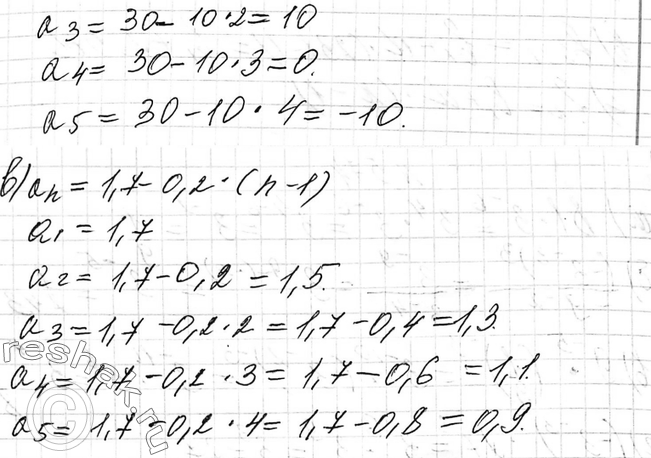 a3 = 30 - 10·2 = 10
a4 = 30 - 10·3 = 0.
a5 = 30 - 10·4 = -10.
в) an = 1,7 - 0,2·(n-1)
a1 = 1,7
a2 = 1,7 - 0,2 = 1,5.
a3 = 1,7 - 0,2·2 = 1,7 - 0,4 = 1,3.
a4 = 1,7 - 0,2·3 = 1,7 - 0,6 = 1,1.
a5 = 1,7 - 0,2·4 = 1,7 - 0,8 = 0,9.
©reshak.ru